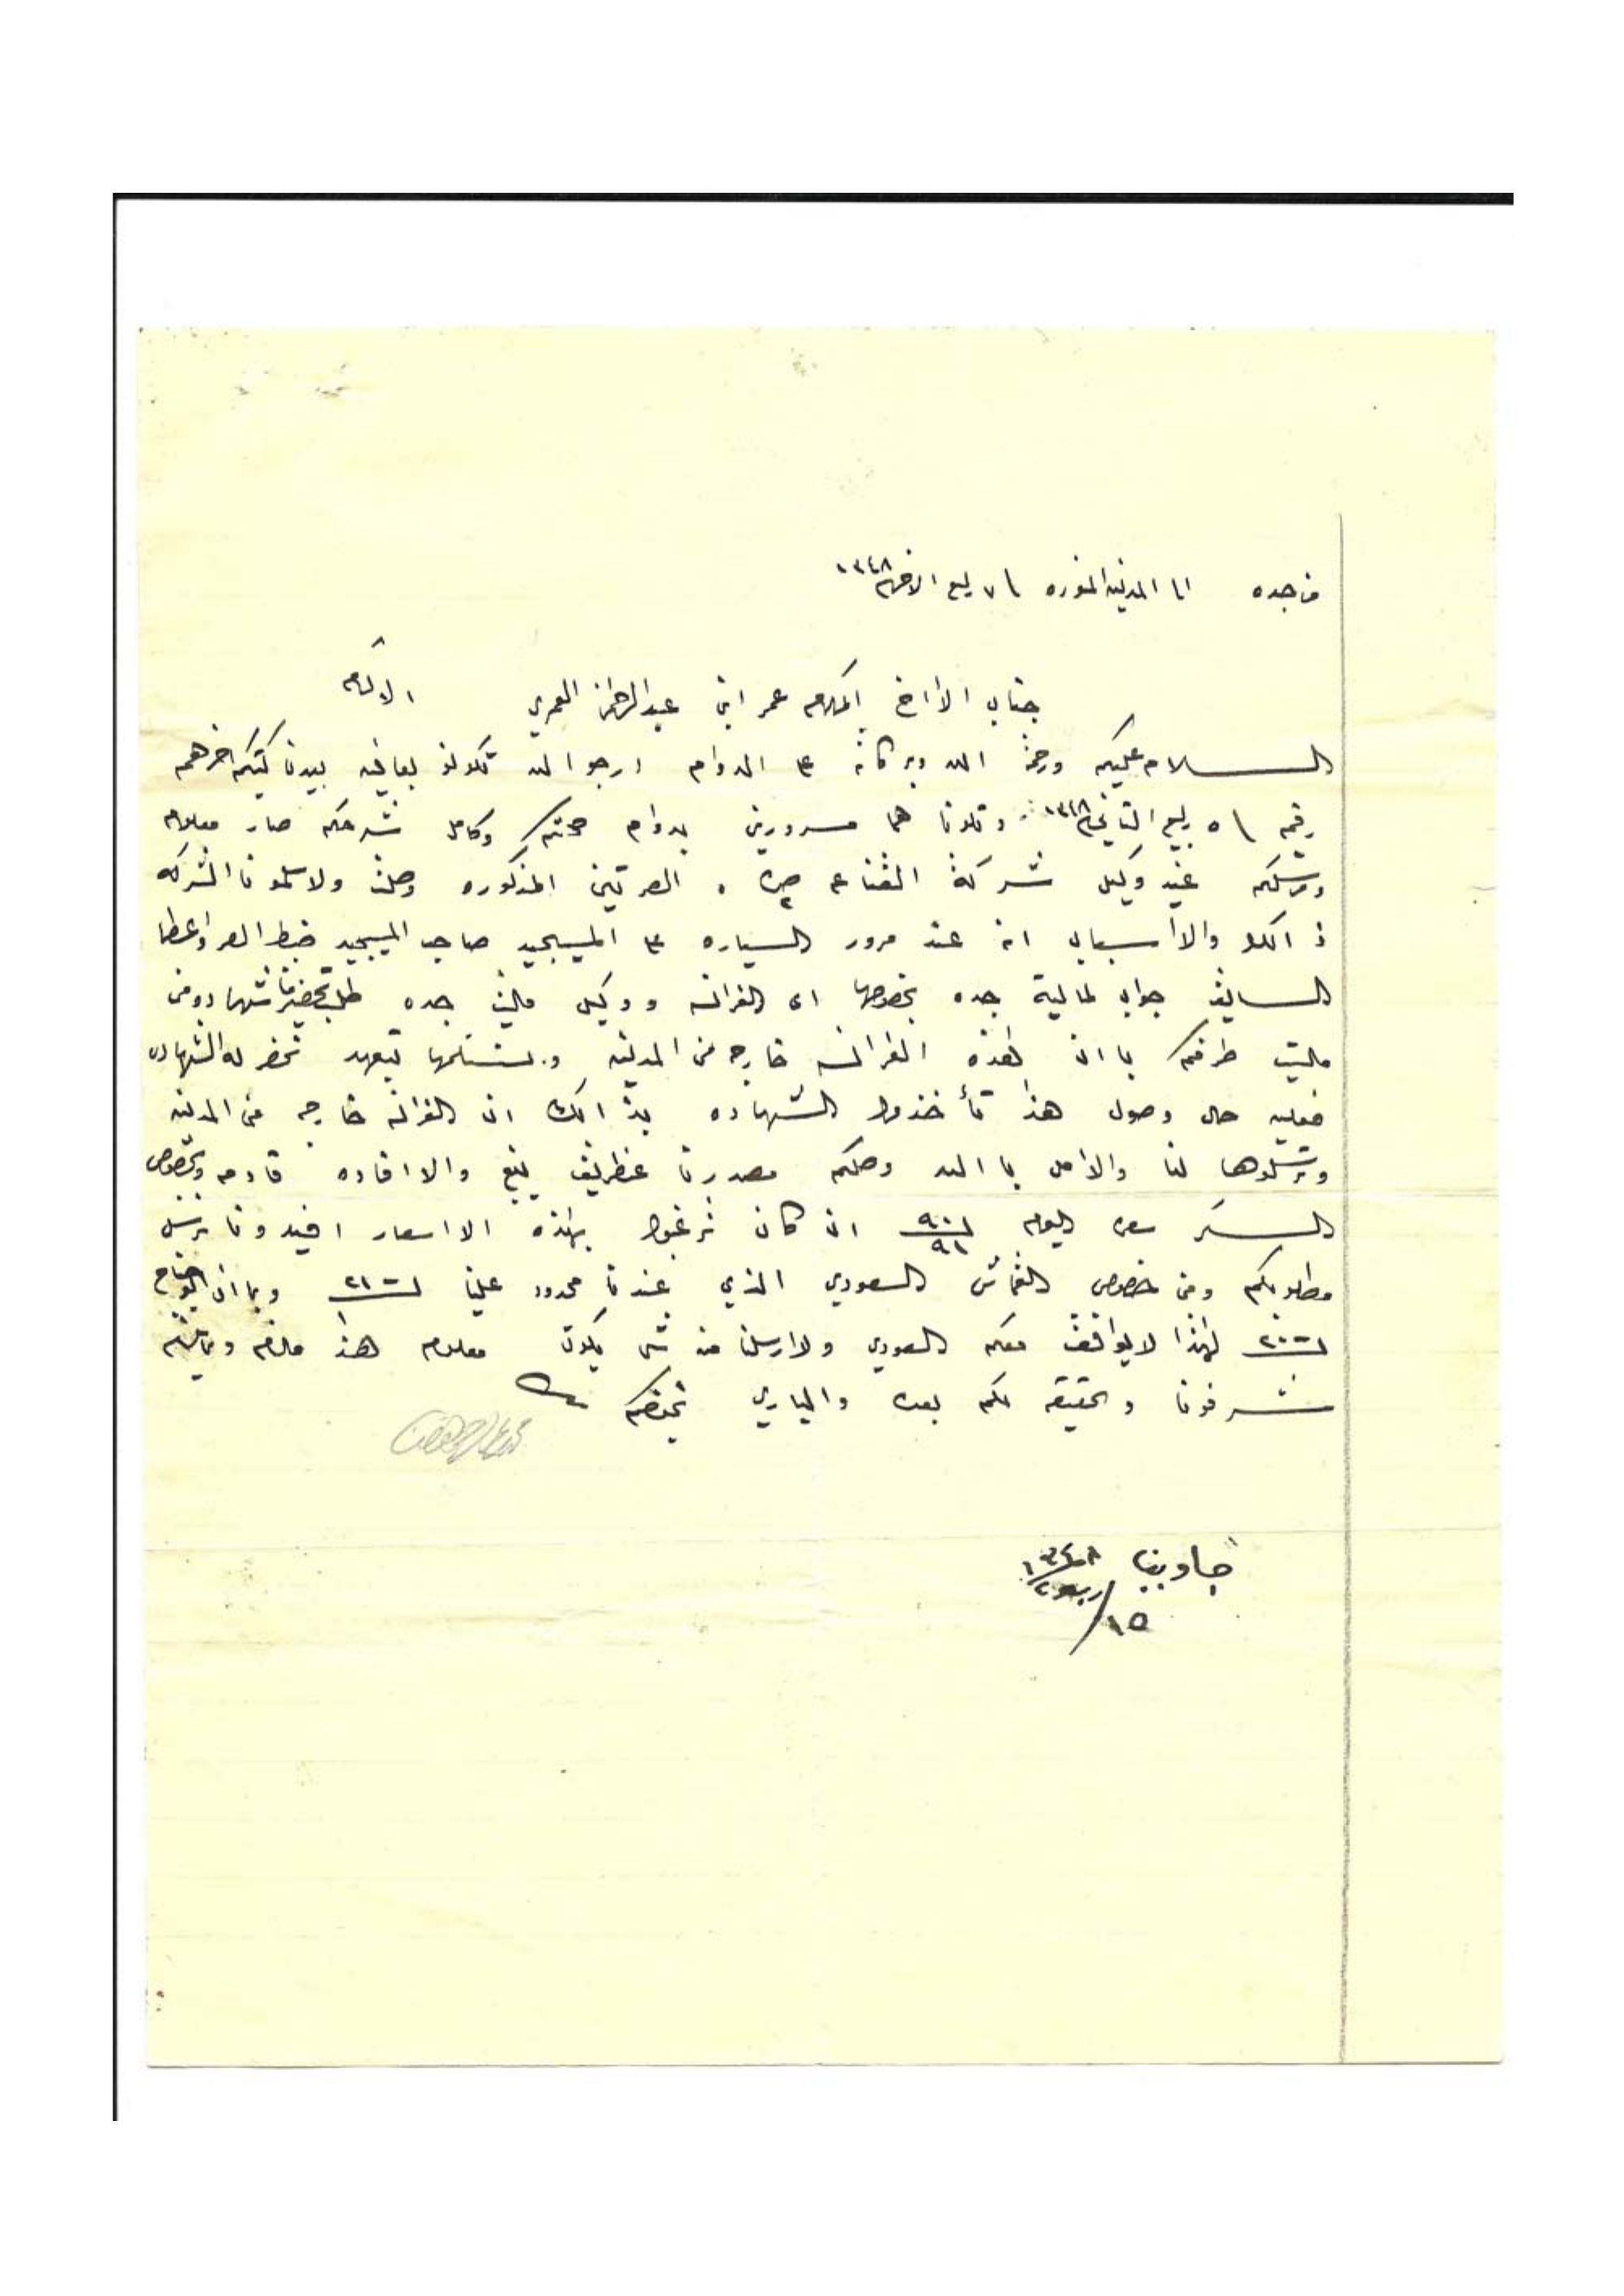 من جده الى المدينه المنوره ٧ ربيع الاخر ١٣٤٨
جناب الااخ المكرم عمر ابن عبدالرحمن العمري الاكرم
السلام عليكم ورحمة الله وبركاته على الدوام ارجو الله تكونو بعافيه بيدنا كتبكم اخرهم
رقيم ٥ ربيع الثاني ١٣٤٨ وتلوناهما مسرورين بدوام صحتكم وكامل شرحكم صار معلوم
ومرسلكم عند وكيل شركة القناعه صره ٢ الصرتين المذكوره وصلت ولا سلمونا الشركه
ذالك والااسباب انه عند مرور السياره على المسيجيد صاحب المسيجيد ضبط الصر واعطا
السايق جواب لمالية جده بخصوصها اي الفرانسه ووكيل مالية جده طلب تحضير شهاده من
مالية طرفكم باان هذه الفرانسه خارجه من المدينه و نستلمها بتعهد نحضر له الشهاده
فعليه حال وصول هذا تأخذوا الشهاده بذالك ان الفرانسه خارجه من المدينه
وترسلوها لنا والاامل باالله وصلكم مصدرنا عن طريق ينبع والاافاده قادمه وبخصوص
السكر سعره اليوم ٩٠ ٩١ ان كان ترغبوا بهذه الااسعار افيدونا نرسل
مطلوبكم ومن خصوص القماش السعودي الذي عندنا محدود علينا ٢١ وبما ان
٢٠ لهذا لا يوافق معكم السعودي ولا ارسلنا منه شي يكون معلوم هذا مالزم
شرفونا والحقيقه لكم بعده والباري يحفظكم
جاوبنا ١٣٤٨
١٥ ربيع ٢